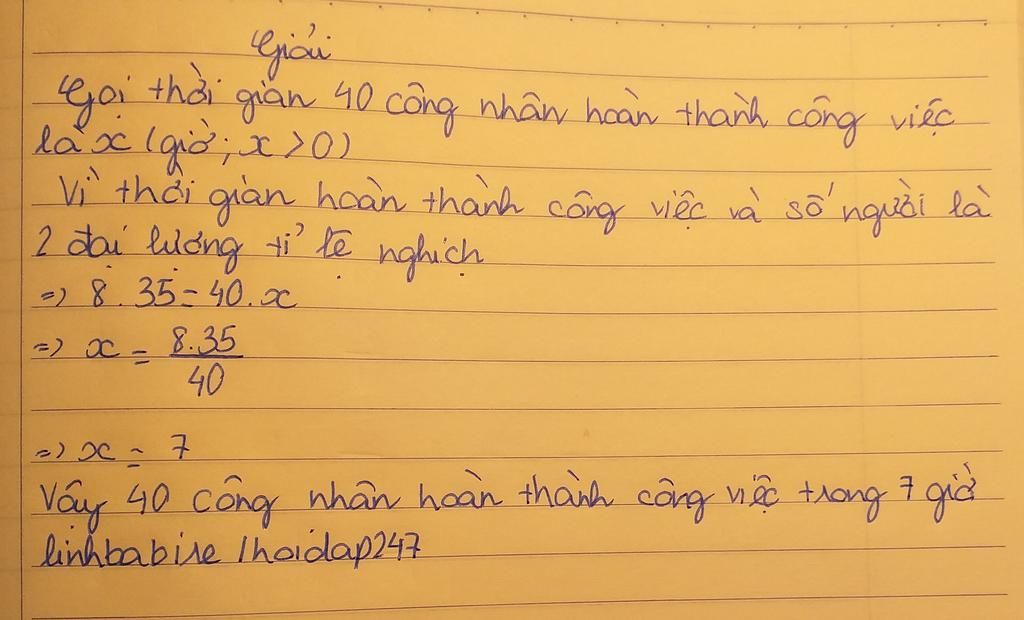 Giải
Gọi thời gian 40 công nhân hoàn thành công việc
là x (giờ; x > 0)
Vì thời gian hoàn thành công việc và số người là
2 đại lượng tỉ lệ nghịch
=> 8.35 = 40.x
=> x = 8.35/40
=> x = 7
Vậy 40 công nhân hoàn thành công việc trong 7 giờ
linhbabise /hoidap247